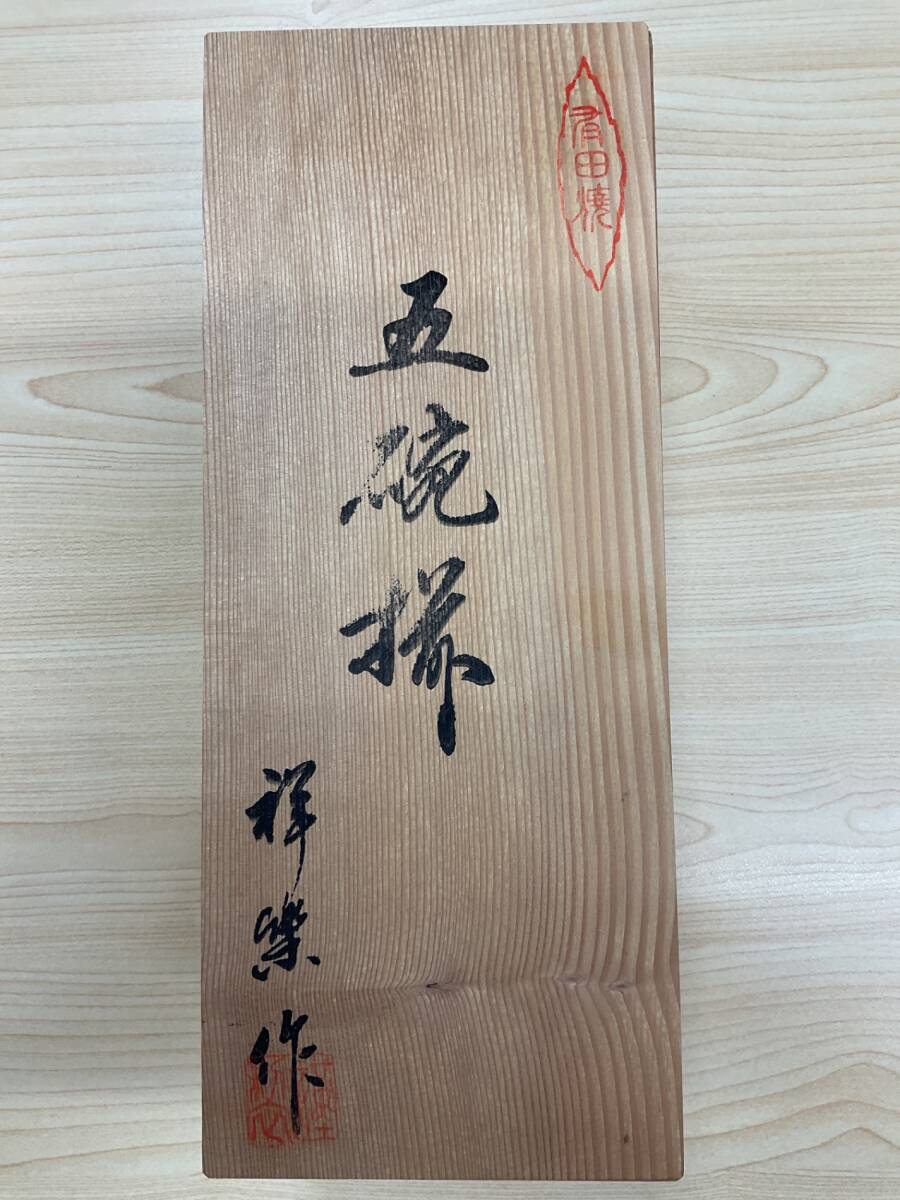 有田焼
五碗揃
祥楽作